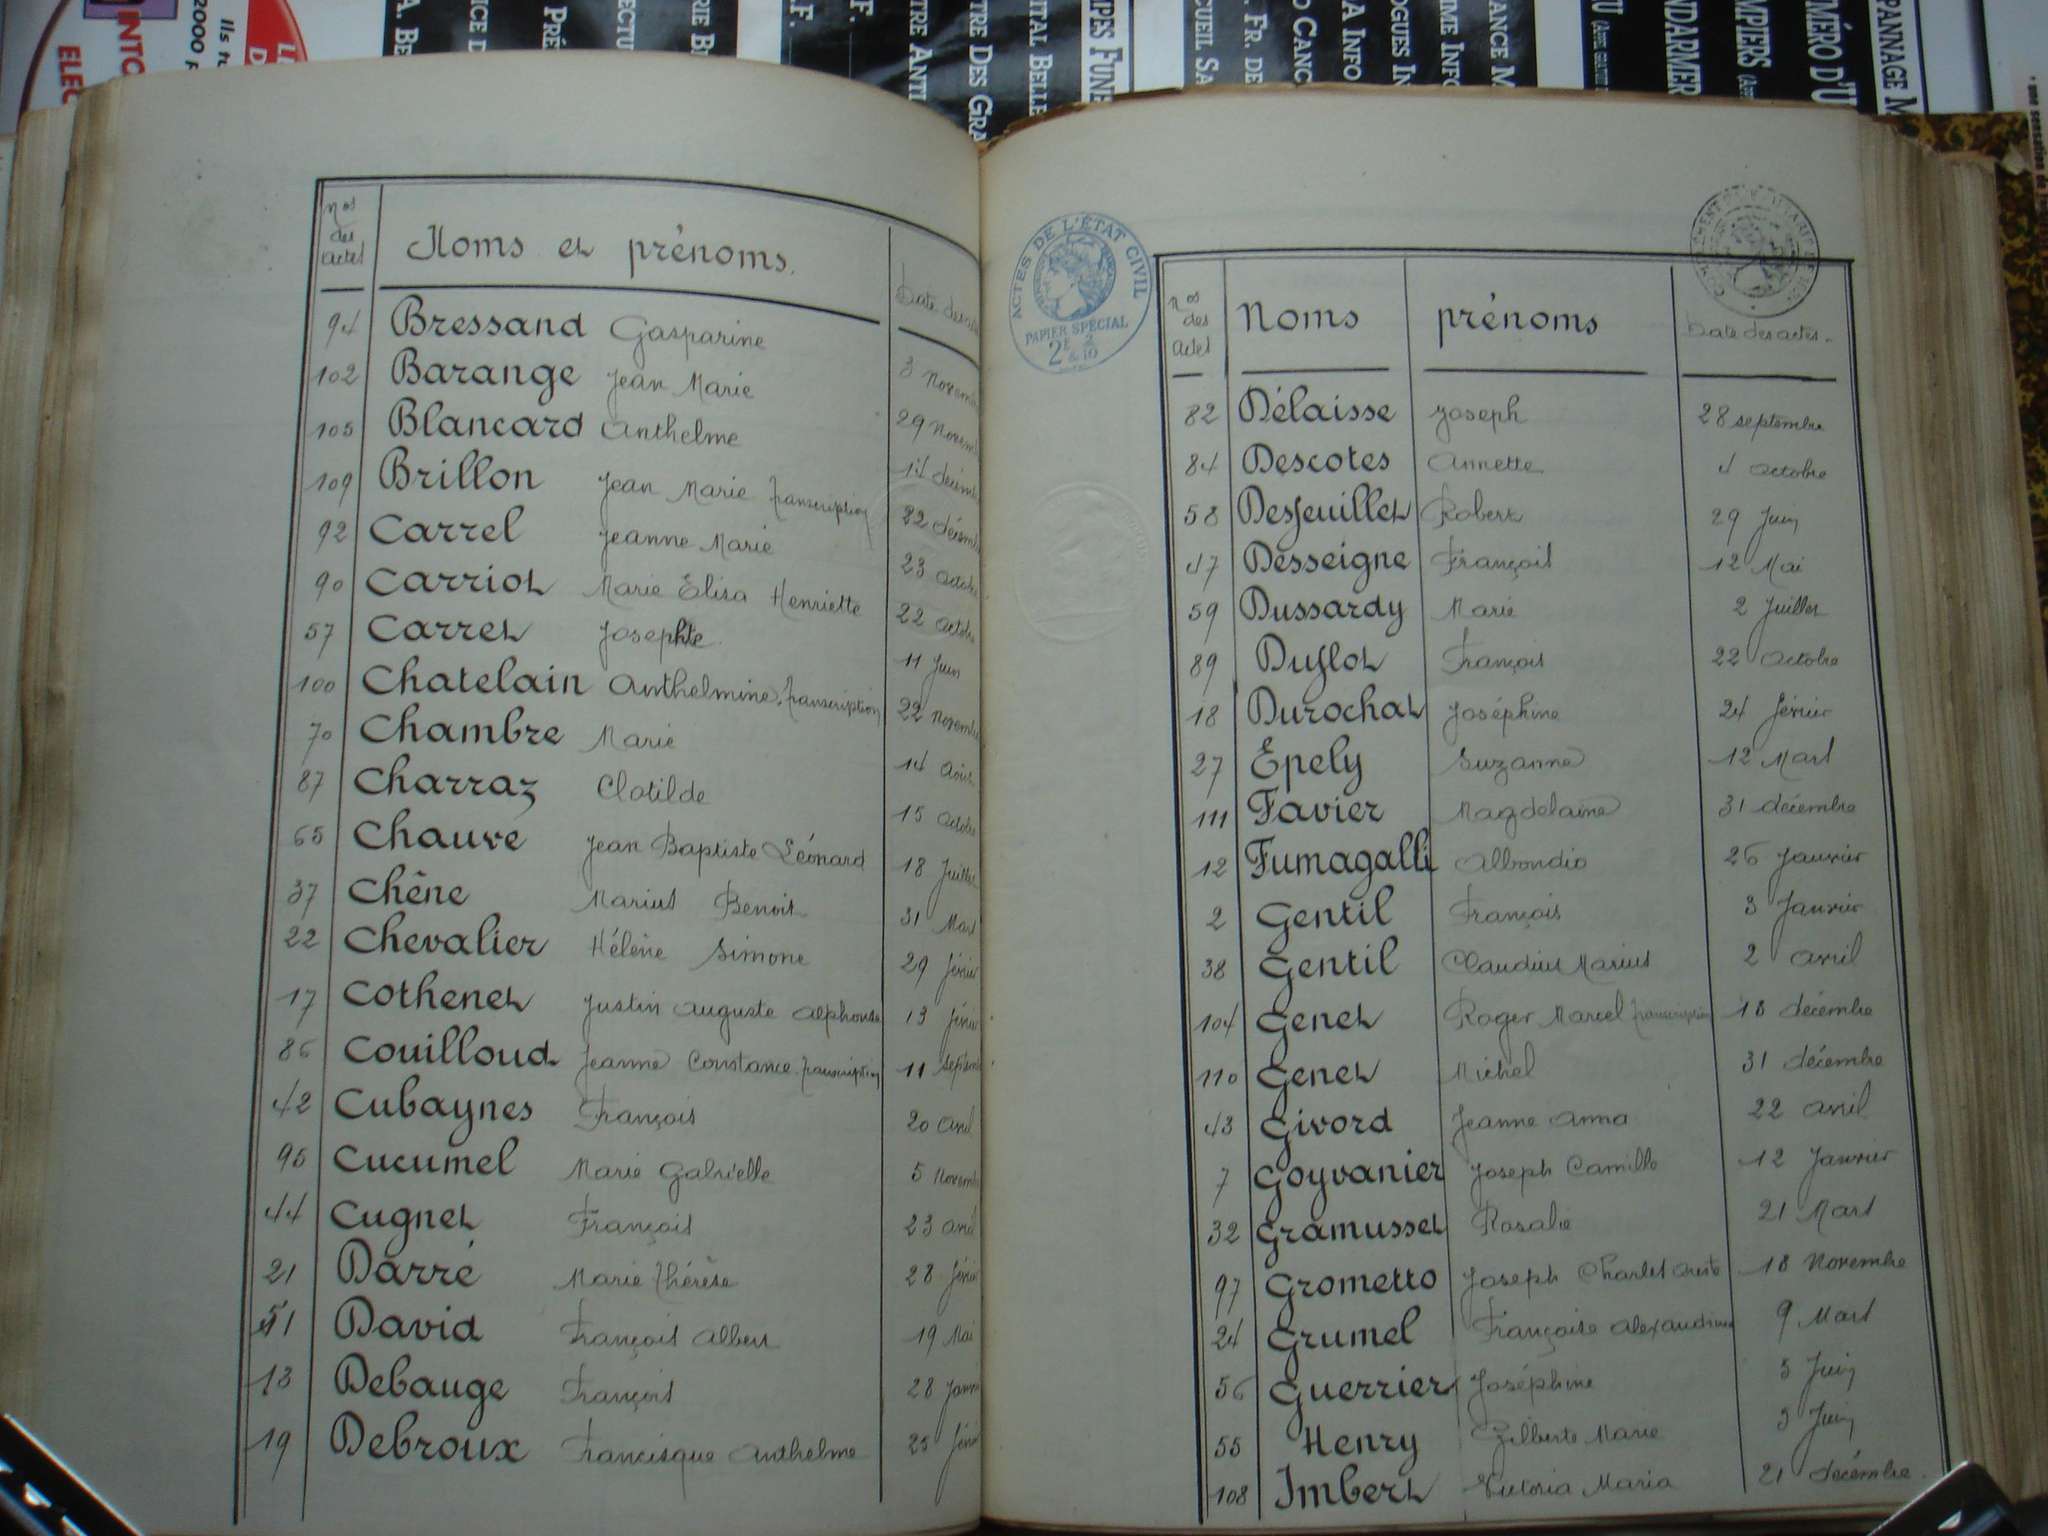 Nos des actes Noms et prénoms. Date des actes
94 Bressand Gasparine 3 Novem
102 Barange Jean Marie 29 Novem
105 Blancard Anthelme 14 décem
109 Brillon Jean Marie transcription 22 décem
92 Carrel Jeanne Marie 23 octob
90 Carriot Marie Elisa Henriette 22 octob
57 Carret Josephte 11 Juin
100 Chatelain Anthelmine, transcription 22 Novem
70 Chambre Marie 14 août
87 Charraz Clotilde 15 octob
65 Chauve Jean Baptiste Léonard 18 Juillet
37 Chêne Marius Benoit 31 Mars
22 Chevalier Hélène Simone 29 févrie
17 Cothenet Justin Auguste Alphonse 13 févrie
86 Couilloud Jeanne Constance transcription 11 septem
42 Cubaynes François 20 avril
95 Cucumel Marie Gabrielle 5 Novemb
44 Cugnet François 23 avril
21 Darré Marie Thérèse 28 févrie
51 David François Albert 19 Mai
13 Debauge François 28 Janvi
19 Debroux Francisque Anthelme 25 févri
ACTES DE L'ÉTAT CIVIL
PAPIER SPÉCIAL
2F 2 & 10
Nos des actes Noms prénoms Date des actes
82 Délaisse Joseph 28 septembre
84 Descotes Annette 4 octobre
58 Desfeuillet Robert 29 Juin
47 Desseigne François 12 Mai
59 Dussardy Marie 2 Juillet
89 Duflot François 22 octobre
18 Durochat Joséphine 24 février
27 Epely Suzanne 12 Mars
111 Favier Magdelaine 31 décembre
12 Fumagalli Abbondio 26 Janvier
2 Gentil François 3 Janvier
38 Gentil Claudius Marius 2 avril
104 Genet Roger Marcel transcription 18 décembre
110 Genet Michel 31 décembre
43 Givord Jeanne Anna 22 avril
7 Goyvanier Joseph Camille 12 Janvier
32 Gramusset Rosalie 21 Mars
97 Grometto Joseph Charles 18 Novembre
24 Grumel Françoise Alexandrine 9 Mars
56 Guerrier Joséphine 5 Juin
55 Henry Gilberte Marie 3 Juin
108 Imbert Victoria Maria 21 décembre